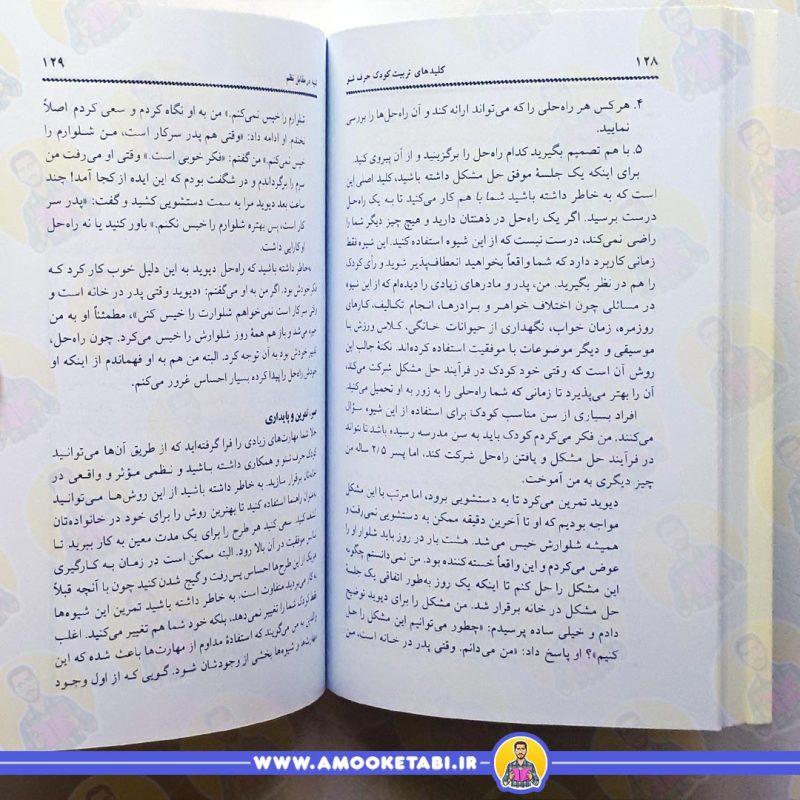 ۱۲۸
کلیدهای تربیت کودک حرف شنو
۴. هر کس هر راه‌حلی را که می‌تواند ارائه کند و آن راه‌حل‌ها را بررسی
نمایید.
۵. با هم تصمیم بگیرید کدام راه‌حل را برگزینید و از آن پیروی کنید.
برای اینکه یک جلسهٔ موفق حل مشکل داشته باشید، کلید اصلی این
است که به خاطر داشته باشید شما با هم کار می‌کنید تا به یک راه‌حل
درست برسید. اگر یک راه‌حل در ذهنتان دارید و هیچ چیز دیگر شما را
راضی نمی‌کند، درست نیست که از این شیوه استفاده کنید. این شیوه فقط
زمانی کاربرد دارد که شما واقعاً بخواهید انعطاف‌پذیر شوید و رأی کودک
را هم در نظر بگیرید. من، پدر و مادرهای زیادی را دیده‌ام که از این شیوه
در مسائلی چون اختلاف خواهر و برادرها، انجام تکالیف، کارهای
روزمره، زمان خواب، نگهداری از حیوانات خانگی، کلاس ورزش یا
موسیقی و دیگر موضوعات با موفقیت استفاده کرده‌اند. نکتهٔ جالب این
روش آن است که وقتی خود کودک در فرآیند حل مشکل شرکت می‌کند،
آن را بهتر می‌پذیرد تا زمانی که شما راه‌حلی را به زور به او تحمیل می‌کنید.
افراد بسیاری از سن مناسب کودک برای استفاده از این شیوه سؤال
می‌کنند. من فکر می‌کردم کودک باید به سن مدرسه رسیده باشد تا بتواند
در فرآیند حل مشکل و یافتن راه‌حل شرکت کند، اما پسر ۲/۵ ساله من
چیز دیگری به من آموخت.
دیوید تمرین می‌کرد تا به دستشویی برود، اما مرتب با این مشکل
مواجه بودیم که او تا آخرین دقیقه ممکن به دستشویی نمی‌رفت و
همیشه شلوارش خیس می‌شد. هشت بار در روز باید شلوار او را
عوض می‌کردم و این واقعاً خسته‌کننده بود. من نمی‌دانستم چگونه
این مشکل را حل کنم تا اینکه یک روز به‌طور اتفاقی یک جلسهٔ
حل مشکل در خانه برقرار شد. من مشکل را برای دیوید توضیح
دادم و خیلی ساده پرسیدم: «چطور می‌توانیم این مشکل را حل
کنیم»؟ او پاسخ داد: «من می‌دانم. وقتی پدر در خانه است، من
۱۲۹
نظم
شلوارم را خیس نمی‌کنم.» من به او نگاه کردم و سعی کردم اصلاً
نخندم. او ادامه داد: «وقتی هم پدر سرکار است، من شلوارم را
خیس نمی‌کنم.» من گفتم: «فکر خوبی است.» وقتی او می‌رفت من
سرم را برگرداندم و در شگفت بودم که این ایده از کجا آمد! چند
ساعت بعد دیوید مرا به سمت دستشویی کشید و گفت: «پدر سر
کار است، پس بهتره شلوارم را خیس نکنم.» باور کنید یا نه راه‌حل
او کارایی داشت.
به‌خاطر داشته باشید که راه‌حل دیوید به این دلیل خوب کار کرد که
فکر خودش بود. اگر من به او می‌گفتم: «دیوید وقتی پدر در خانه است و
وقتی سر کار است نمی‌خواهم شلوارت را خیس کنی»، مطمئناً او به من
خیره می‌شد و باز هم همهٔ روز شلوارش را خیس می‌کرد. چون راه‌حل،
خودش بود به آن توجه کرد. البته من هم به او فهماندم از اینکه او
خودش راه‌حل را پیدا کرده بسیار احساس غرور می‌کنم.
صبر، تمرین و پایداری
حالا شما مهارت‌های زیادی را فرا گرفته‌اید که از طریق آن‌ها می‌توانید
کودک حرف شنو و همکاری داشته باشید و نظمی مؤثر و واقعی در
خانه‌تان برقرار سازید. به خاطر داشته باشید از این روش‌ها می‌توانید
به‌عنوان راهنما استفاده کنید تا بهترین روش را برای خود در خانواده‌تان
کشف کنید. سعی کنید هر طرح را برای یک مدت معین به کار ببرید تا
شانس موفقیت در آن بالا رود. البته ممکن است در زمان به کارگیری
هر یک از این طرح‌ها احساس پس‌رفت و گیج شدن کنید چون با آنچه قبلاً
به کار می‌بردید متفاوت است. به خاطر داشته باشید تمرین این شیوه‌ها
فقط کودک شما را تغییر نمی‌دهد، بلکه خود شما هم تغییر می‌کنید. اغلب
والدین به من می‌گویند که استفادهٔ مداوم از مهارت‌ها باعث شده که این
مهارت‌ها و شیوه‌ها بخشی از وجودشان شود. گویی که از اول وجود
WWW.AMOOKETABI.IR